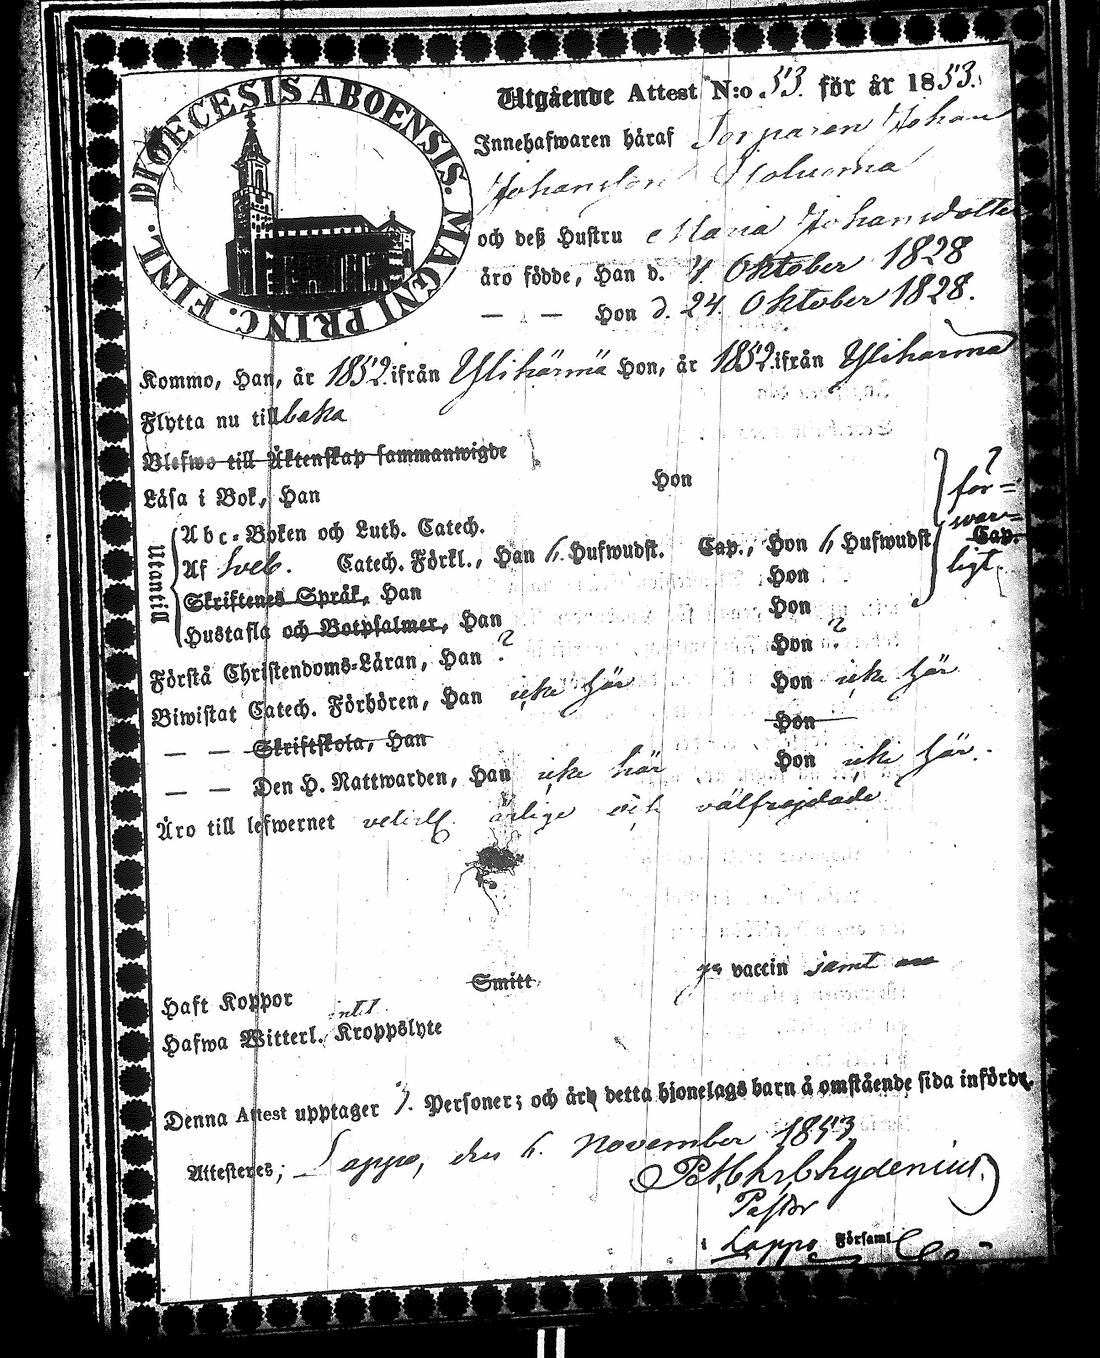 DIOECESIS ABOENSIS. MAGNI PRINC. FINL.
Utgående Attest N:o 53. för år 1853.
Innehafwaren häraf Torparen Johan
Johansson
och deß Hustru Maria Johansdotter
äro födde, Han d. 4. Oktober 1828
— — Hon d. 24. Oktober 1828.
Kommo, Han, år 1852 ifrån Ylihärmä Hon, år 1852 ifrån Ylihärmä
Flytta nu tillbaka
Blefwo till Äktenskap sammanwigde
Läsa i Bok, Han Hon
för=
war=
ligt.
Utantill
Abc-Boken och Luth. Catech.
Af Sveb. Catech. Förkl., Han 6 Hufwudst. Cap., Hon 6 Hufwudst. Cap.
Skriftenes Språk, Han Hon
Hustafla och Botpsalmer, Han Hon
Förstå Christendoms-Läran, Han ? Hon ?
Biwistat Catech. Förhören, Han icke här Hon icke här
— — Skriftskola, Han Hon
— — Den H. Nattwarden, Han icke här Hon icke här.
Äro till lefwernet veterl. ärlige och välfrejdade
Haft Koppor Smitt vaccin samt
Hafwa Witterl. intet Kroppslyte
Denna Attest upptager Personer; och äro detta hjonelags barn å omstående sida införde.
Attesteres; Lappo, den 6. November 1853
Chydenius
Pastor
i Lappo Församl